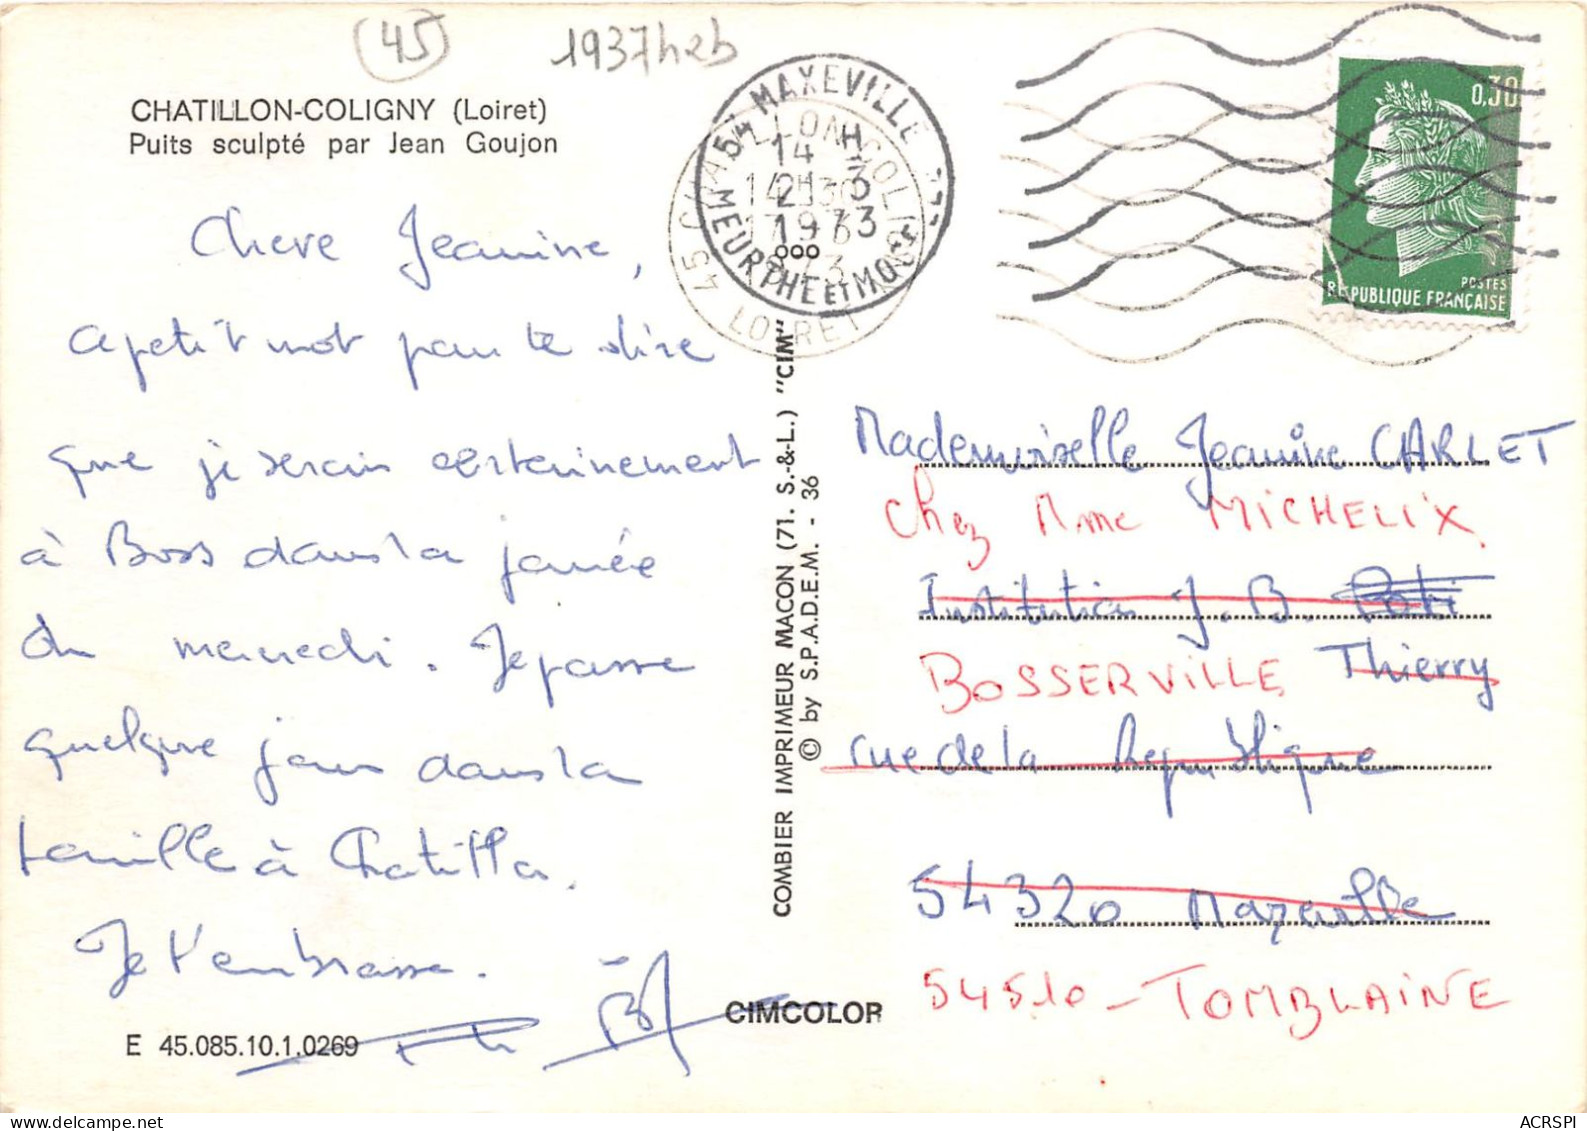 45
1937h2b
CHATILLON-COLIGNY (Loiret)
Puits sculpté par Jean Goujon
54 MAXEVILLE
14 H
21-3
1973
MEURTHE ET MOSELLE
45 CHATILLON COLIGNY
14H30
17-3
LOIRET
0,30
POSTES
REPUBLIQUE FRANÇAISE
Chere Jeanine,
a petit mot pour te dire
que je serais certainement
à Boss dans la journée
du mercredi. Je passe
quelque jour dans la
famille à Chatillon.
Je t'embrasse.
E 45.085.10.1.0269
COMBIER IMPRIMEUR MACON (71. S.-&-L.) "CIM"
© by S.P.A.D.E.M. - 36
CIMCOLOR
Mademoiselle Jeanine CARLET
Chez Mme MICHELIX
Institution J. B.
BOSSERVILLE Thierry
rue de la République
54320 Maxeville
54510 - TOMBLAINE
ACRSPI